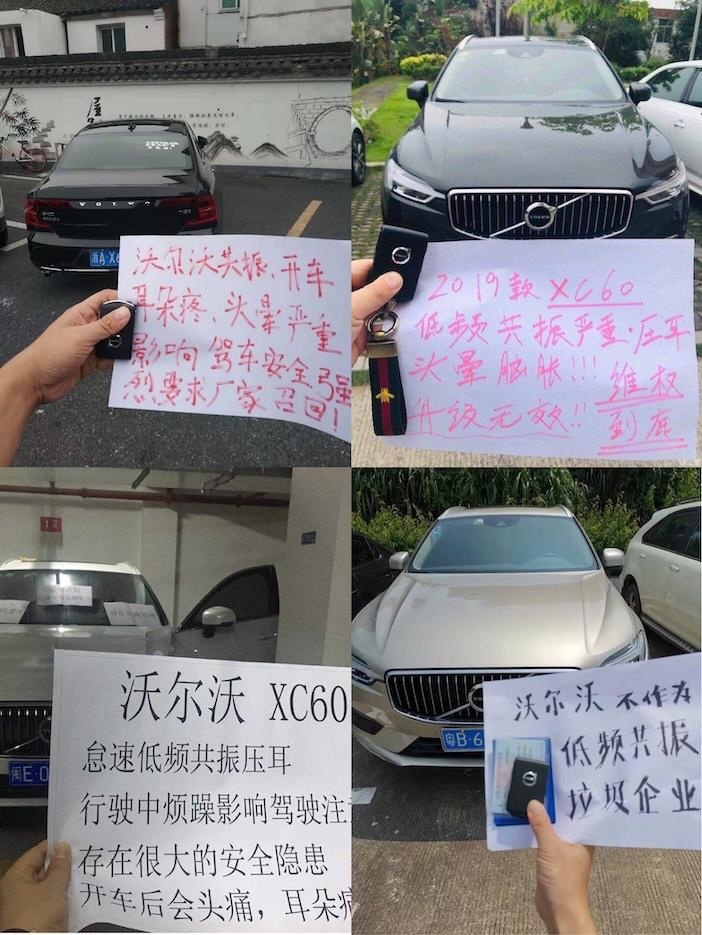 VOLVO
浙A·X6
沃尔沃共振、开车
耳朵疼、头晕严重
影响驾车安全强
烈要求厂家召回!
VOLVO
2019款XC60
低频共振严重·压耳
头晕脑胀!!!
升级无效!!
维权
到底
12
闽E·0
沃尔沃 XC60
怠速低频共振压耳
行驶中烦躁影响驾驶注
存在很大的安全隐患
开车后会头痛,耳朵痛
粤B·6
沃尔沃不作为
低频共振
垃圾企业